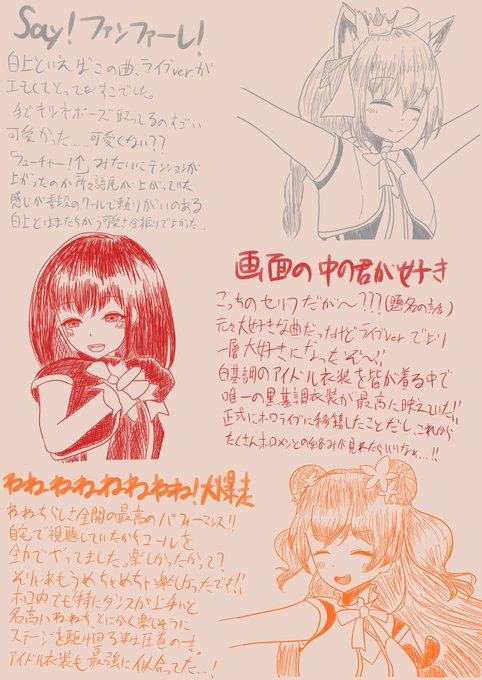 Say! ファンファーレ!
白上といえばこの曲、ライブver.が
エモくてとってもすこでした。
手でキツネポーズ取ってるのすごい
可愛かった…可愛くない??
「フューチャー!↑」みたいにテンションが
上がったのか所々語尾が上がっていた
感じが普段のクールで頼りがいのある
白上とはまたちがう可愛さ全振りでよかった…
画面の中の君が好き
こっちのセリフだが〜???(題名の話)
元々大好きな曲だったけどライブverでより
一層大好きになったぞ〜!!
白基調のアイドル衣装を皆が着る中で
唯一の黒基調衣装が最高に映えていた!!
正式にホロライブに移籍したことだし、これから
たくさんホロメンとの絡みが見れたらいいなぁ…!!
ねねねねねねねね!大爆走
ねねちらしさ全開の最高のパフォーマンス!!
自宅で視聴していたからコールを
全力でやってました。楽しかったかって?
そりゃあもうめちゃめちゃ楽しかったです!!
ホロ内でも特にダンスが上手いと
名高いねねち、とにかく楽しそうに
ステージを駆け回る姿は圧巻の一言。
アイドル衣装も最強に似合ってた…!